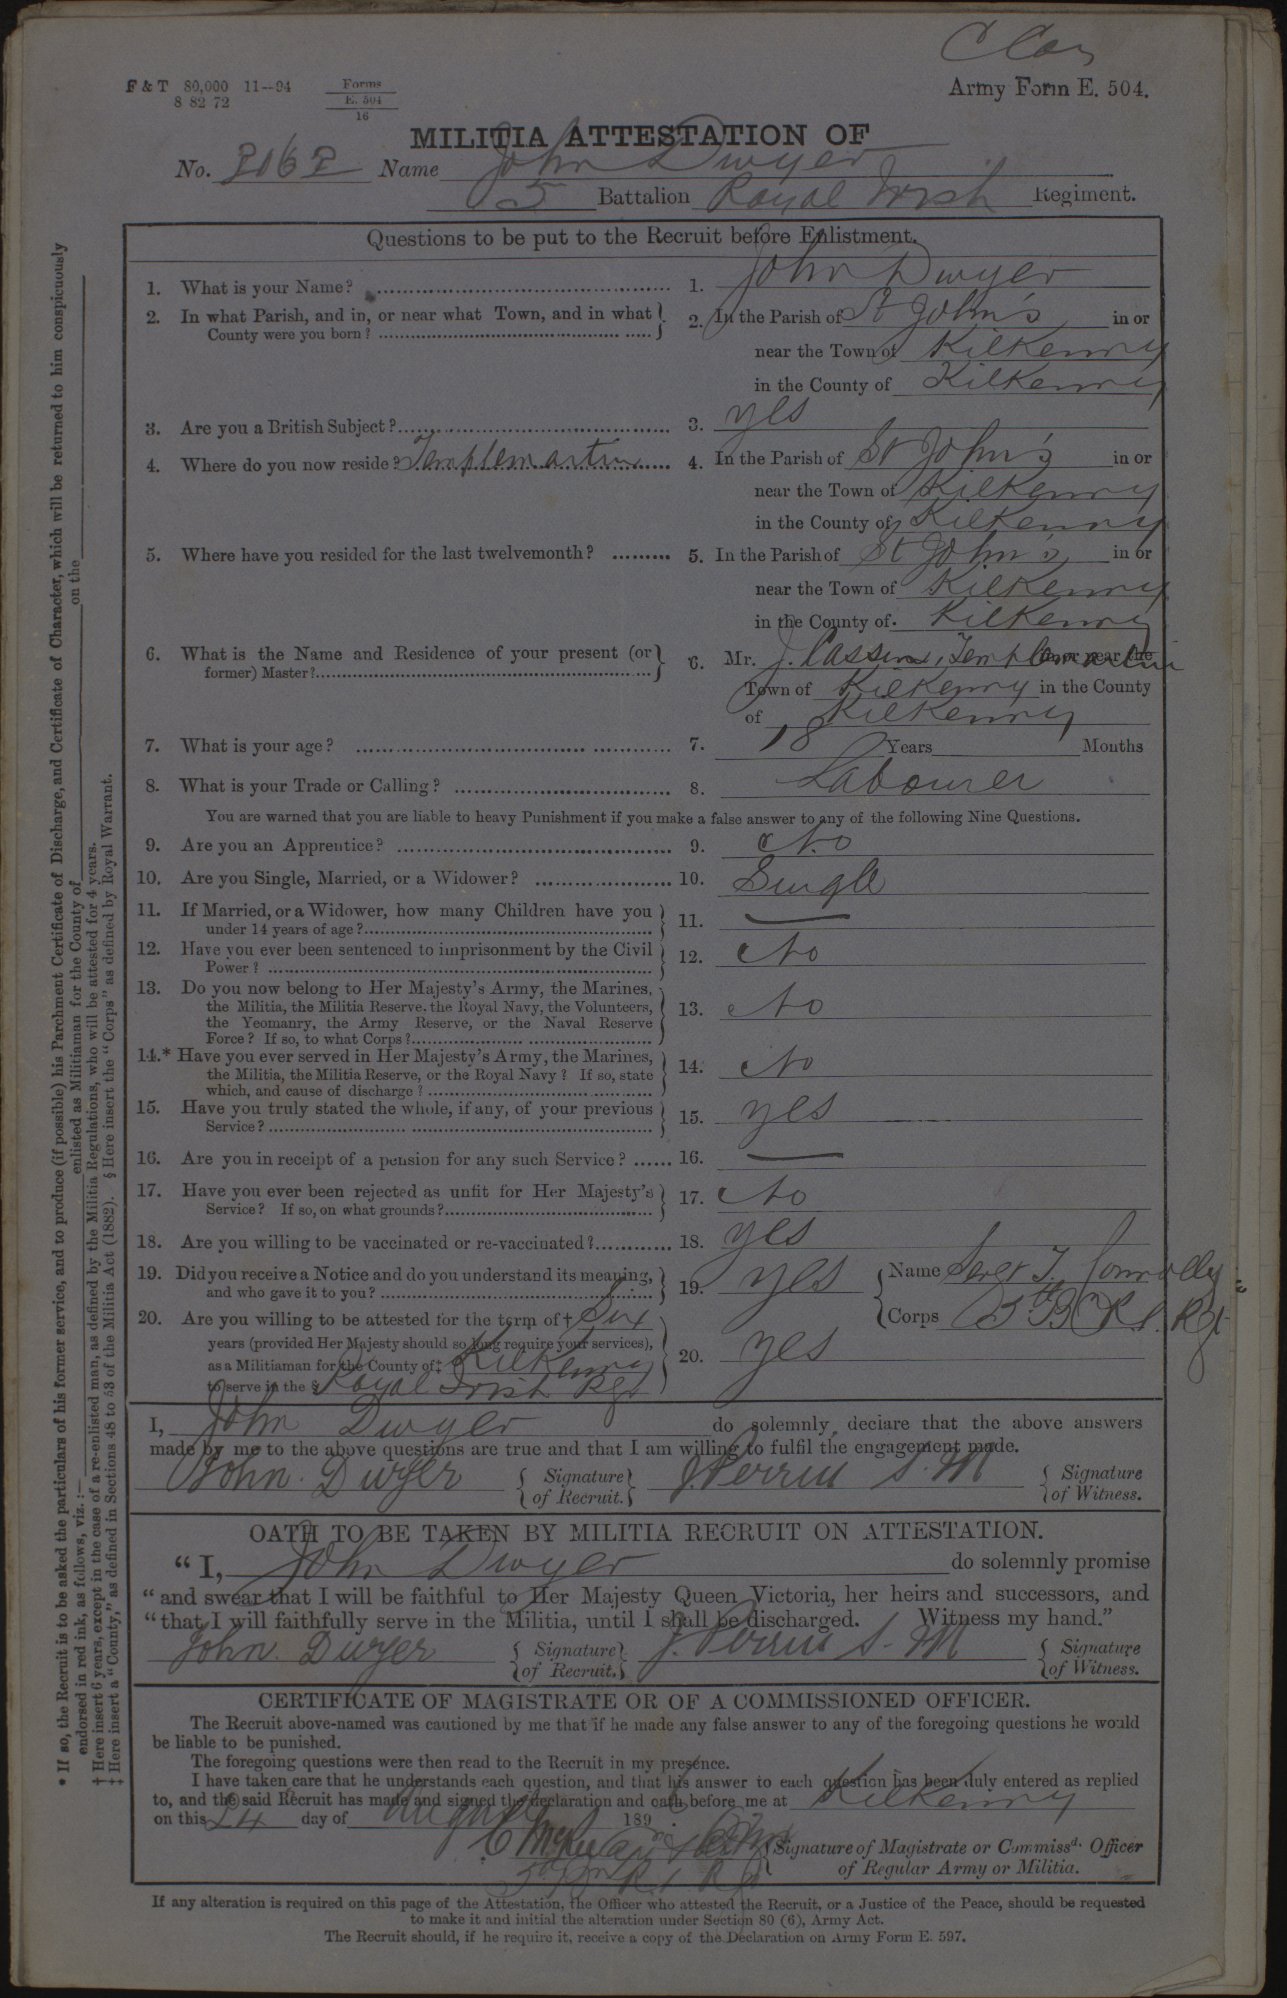 F & T 80,000 11--94 Forms E. 504 16
8 82 72
Army Form E. 504.
MILITIA ATTESTATION OF
No. 2162 Name John Dwyer
5 Battalion Royal Irish Regiment.
Questions to be put to the Recruit before Enlistment.
1. What is your Name? 1. John Dwyer
2. In what Parish, and in, or near what Town, and in what County were you born? 2. In the Parish of St John's in or
near the Town of Kilkenny
in the County of Kilkenny
3. Are you a British Subject? 3. yes
4. Where do you now reside? Templemartin 4. In the Parish of St John's in or
near the Town of Kilkenny
in the County of Kilkenny
5. Where have you resided for the last twelvemonth? 5. In the Parish of St John's in or
near the Town of Kilkenny
in the County of Kilkenny
6. What is the Name and Residence of your present (or former) Master? 6. Mr. J. Cassin, Templemartin in or near the
Town of Kilkenny in the County
of Kilkenny
7. What is your age? 7. 18 Years Months
8. What is your Trade or Calling? 8. Labourer
You are warned that you are liable to heavy Punishment if you make a false answer to any of the following Nine Questions.
9. Are you an Apprentice? 9. No
10. Are you Single, Married, or a Widower? 10. Single
11. If Married, or a Widower, how many Children have you
under 14 years of age? 11. —
12. Have you ever been sentenced to imprisonment by the Civil
Power? 12. No
13. Do you now belong to Her Majesty's Army, the Marines,
the Militia, the Militia Reserve, the Royal Navy, the Volunteers,
the Yeomanry, the Army Reserve, or the Naval Reserve
Force? If so, to what Corps? 13. No
14.* Have you ever served in Her Majesty's Army, the Marines,
the Militia, the Militia Reserve, or the Royal Navy? If so, state
which, and cause of discharge? 14. No
15. Have you truly stated the whole, if any, of your previous
Service? 15. yes
16. Are you in receipt of a pension for any such Service? 16. —
17. Have you ever been rejected as unfit for Her Majesty's
Service? If so, on what grounds? 17. No
18. Are you willing to be vaccinated or re-vaccinated? 18. yes
19. Did you receive a Notice and do you understand its meaning,
and who gave it to you? 19. yes Name Sergt T. Connolly
Corps 5th Bn R. I. Rgt
20. Are you willing to be attested for the term of † Six
years (provided Her Majesty should so long require your services),
as a Militiaman for the County of ‡ Kilkenny
to serve in the § Royal Irish Rgt 20. yes
I, John Dwyer do solemnly declare that the above answers
made by me to the above questions are true and that I am willing to fulfil the engagement made.
John. Dwyer Signature of Recruit. J. Perrin S. M Signature of Witness.
OATH TO BE TAKEN BY MILITIA RECRUIT ON ATTESTATION.
"I, John Dwyer do solemnly promise
"and swear that I will be faithful to Her Majesty Queen Victoria, her heirs and successors, and
"that I will faithfully serve in the Militia, until I shall be discharged. Witness my hand."
John. Dwyer Signature of Recruit. J. Perrin S. M Signature of Witness.
CERTIFICATE OF MAGISTRATE OR OF A COMMISSIONED OFFICER.
The Recruit above-named was cautioned by me that if he made any false answer to any of the foregoing questions he would
be liable to be punished.
The foregoing questions were then read to the Recruit in my presence.
I have taken care that he understands each question, and that his answer to each question has been duly entered as replied
to, and the said Recruit has made and signed the declaration and oath before me at Kilkenny
on this 24 day of August 189
Signature of Magistrate or Commissd. Officer
of Regular Army or Militia.
5th Bn R. I. Rgt
If any alteration is required on this page of the Attestation, the Officer who attested the Recruit, or a Justice of the Peace, should be requested
to make it and initial the alteration under Section 80 (6), Army Act.
The Recruit should, if he require it, receive a copy of the Declaration on Army Form E. 597.
* If so, the Recruit is to be asked the particulars of his former service, and to produce (if possible) his Parchment Certificate of Discharge, and Certificate of Character, which will be returned to him conspicuously
endorsed in red ink, as follows, viz. :— enlisted as Militiaman for the County of on the
† Here insert 6 years, except in the case of a re-enlisted man, as defined by the Militia Regulations, who will be attested for 4 years.
‡ Here insert a "County," as defined in Sections 48 to 53 of the Militia Act (1882). § Here insert the "Corps" as defined by Royal Warrant.